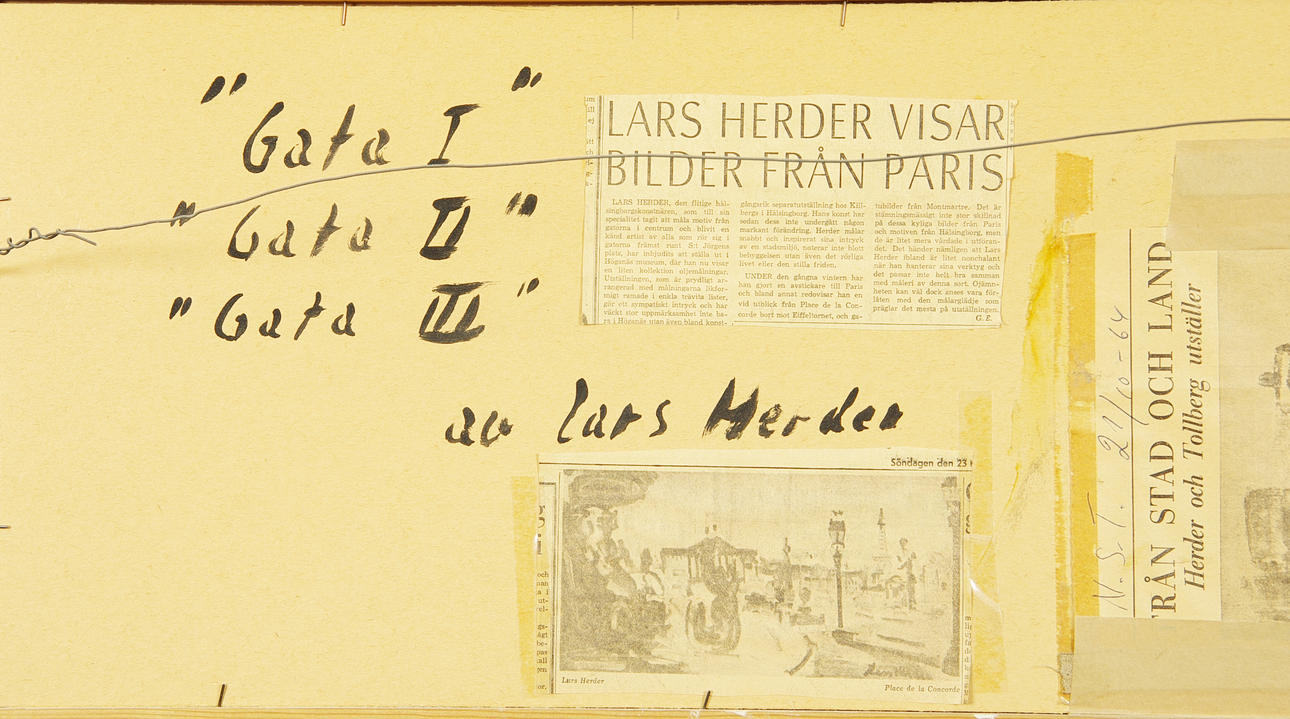 "Gata I"
"Gata II"
"Gata III"
av Lars Herder
LARS HERDER VISAR
BILDER FRÅN PARIS
LARS HERDER, den flitige häl-
singborgskonstnären, som till sin
specialitet tagit att måla motiv från
gatorna i centrum och blivit en
känd artist av alla som rör sig i
gatorna främst runt S:t Jörgens
plats, har inbjudits att ställa ut i
Höganäs museum, där han nu visar
en liten kollektion oljemålningar.
Utställningen, som är prydligt ar-
rangerad med målningarna likfor-
migt ramade i enkla trävita lister,
gör ett sympatiskt intryck och har
väckt stor uppmärksamhet inte ba-
ra i Höganäs utan även bland konst-
gångarik separatutställning hos Kill-
bergs i Hälsingborg. Hans konst har
sedan dess inte undergått någon
markant förändring. Herder målar
snabbt och inspirerat sina intryck
av en stadsmiljö, noterar inte blott
bebyggelsen utan även det rörliga
livet eller den stilla friden.
UNDER den gångna vintern har
han gjort en avstickare till Paris
och bland annat redovisar han en
vid utblick från Place de la Con-
corde bort mot Eiffeltornet, och ga-
tubilder från Montmartre. Det är
stämningsmässigt inte stor skillnad
på dessa kyliga bilder från Paris
och motiven från Hälsingborg, men
de är litet mera vårdade i utföran-
det. Det händer nämligen att Lars
Herder ibland är litet nonchalant
när han hanterar sina verktyg och
det passar inte helt bra samman
med måleri av denna sort. Ojämn-
heten kan väl dock anses vara för-
låten med den målarglädje som
präglar det mesta på utställningen.
G. E.
Söndagen den 23
Lars Herder
Place de la Concorde
N.S.T. 21/10-64
FRÅN STAD OCH LAND
Herder och Tollberg utställer